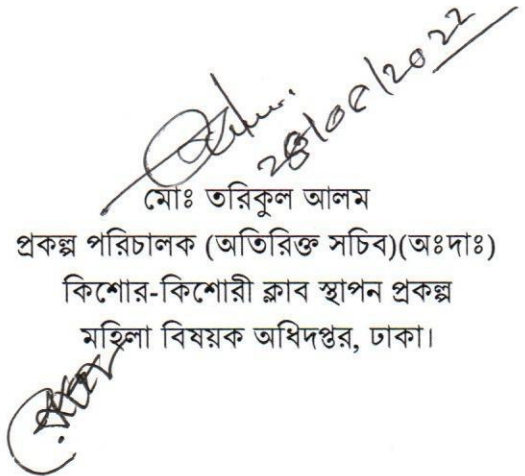 মোঃ তরিকুল আলম
প্রকল্প পরিচালক (অতিরিক্ত সচিব)(অঃদাঃ)
কিশোর-কিশোরী ক্লাব স্থাপন প্রকল্প
মহিলা বিষয়ক অধিদপ্তর, ঢাকা।